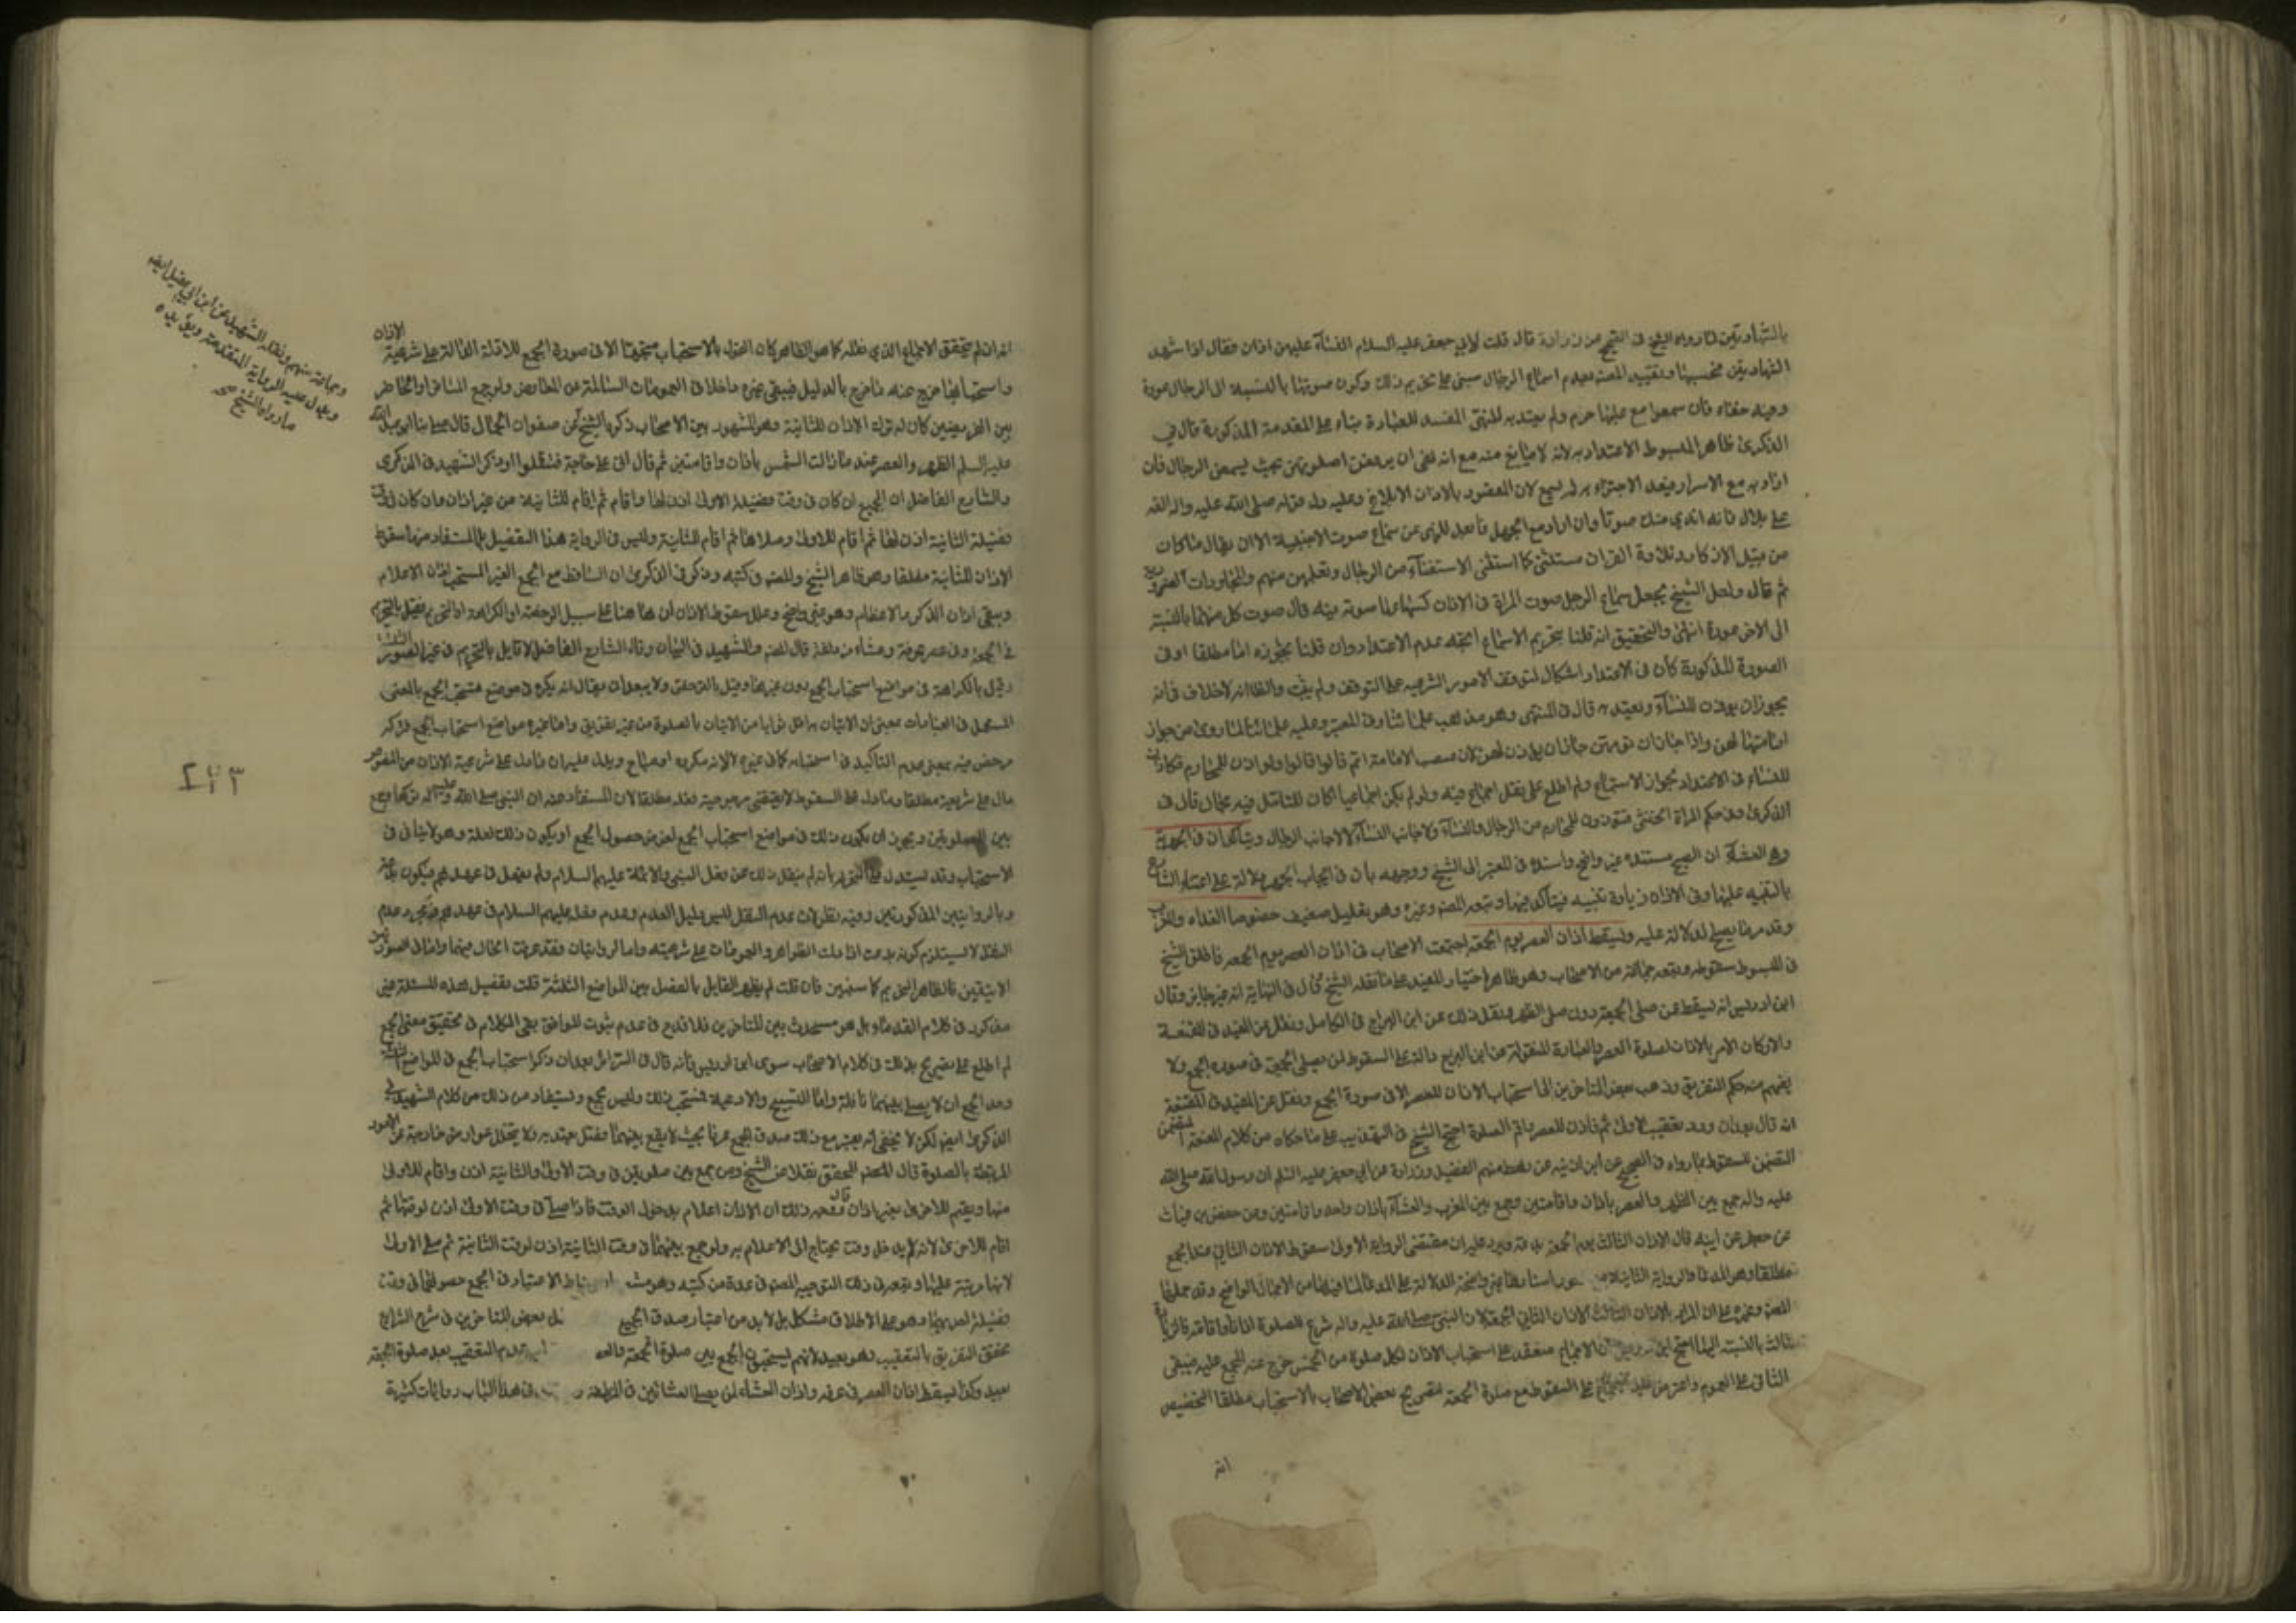 بالشهادتين لما رواه الشيخ في الصحيح عن زرارة قال قلت لابي جعفر عليه السلام النساء عليهن اذان فقال اذا شهدت
الشهادتين فحسبها وتقييد المصنف بعدم اسماع الرجال مبني على تحريم ذلك وكون صوتها بالنسبة الى الرجال عورة
وفيه خفاء فان سمعوا مع علمها حرم ولم يعتد به للنهي المفسد للعبادة بناء على المقدمة المذكورة قال في
الذكرى ظاهر المبسوط الاعتداد به لانه لا مانع منه مع انه نهى ان يرفعن اصواتهن بحيث يسمعن الرجال فان
اراد به مع الاسرار فبعد الاجتزاء به لم يسمع لان المقصود بالاذان الابلاغ وعليه دل قوله صلى الله عليه واله القه
على بلال فانه اندى منك صوتا وان اراد مع الجهر فابعد للنهي عن سماع صوت الاجنبية الا ان يقال ما كان
من قبيل الاذكار وتلاوة القران مستثنى كما استثنى الاستفتاء من الرجال وتعلمهن منهم والمحاورات الضرورية
ثم قال ولعل الشيخ يجعل سماع الرجل صوت المراة في الاذان كسماعها صوته فيه فان صوت كل منهما بالنسبة
الى الاخر عورة انتهى والتحقيق انه قلنا بتحريم الاسماع اتجه عدم الاعتداد وان قلنا بجوازه اما مطلقا او في
الصورة المذكورة كان في الاعتداد اشكال لتوقف الامور الشرعية على التوقف ولم يثبت والظاهر انه لا خلاف في انه
يجوز ان يؤذن للنساء ويعتد به قال في المنتهى وهو مذهب علمائنا وفي المعتبر وعليه علمائنا لما روي من جواز
امامتها لهن واذا جاز ان تؤمهن جاز ان يؤذن لهن لان منصب الامامة اتم قالوا ولو اذن للمحارم فكالاذان
للنساء في الاعتداد بجواز الاستماع ولم اطلع على نقل اجماع فيه ولو لم يكن اجماعيا كان للتامل فيه مجال قال في
الذكرى وفي حكم المراة الخنثى فتؤذن للمحارم من الرجال والنساء ولاجانب النساء لا لاجانب الرجال ويتاكدان في الجهرية
وفي العشاء ان الصبح مستنده غير واضح واسنده في المعتبر الى الشيخ ووجهه بان في ايجاب الجهر دلالة على اعتناء الشارع
بالتنبيه عليها وفي الاذان زيادة تنبيه فيتاكد فيها وتبعه المصنف وغيره وهو تعليل ضعيف خصوصا الغداء والمغرب
وقد مر ما يصلح للدلالة عليه ويسقط اذان العصر يوم الجمعة اجتمعت الاصحاب في اذان العصر يوم الجمعة فاطلق الشيخ
في المبسوط سقوطه وتبعه جماعة من الاصحاب وهو ظاهر اختيار المفيد على ما نقله الشيخ وقال في النهاية انه غير جايز وقال
ابن ادريس انه يسقط عمن صلى الجمعة دون من صلى الظهر ونقل ذلك عن ابن البراج في الكامل ونقل عن المفيد في المقنعة
والاركان الامر بالاذان لصلوة العصر والعبارة المنقولة عن ابن البراج دالة على السقوط لمن يصلي الجمعة في صورة الجمع ولا
يفهم منه حكم التفريق وذهب بعض المتاخرين الى استحباب الاذان للعصر الا في صورة الجمع ونقل عن المفيد في المقنعة
انه قال بعد ان ورد تعقيب الاولى ثم فاذن للعصر واقم الصلوة احتج الشيخ في التهذيب على ما حكاه من كلام المقنعة المتضمن
المتضمن للسقوط بما رواه في الصحيح عن ابن اذينه عن رهط منهم الفضيل وزرارة عن ابي جعفر عليه السلم ان رسول الله صلى الله
عليه واله جمع بين الظهر والعصر باذان واقامتين وجمع بين المغرب والعشاء باذان واحد واقامتين وعن حفص بن غياث
عن جعفر عن ابيه قال الاذان الثالث يوم الجمعة بدعة ويرد عليه ان مقتضى الرواية الاولى سقوط الاذان الثاني عند الجمع
مطلقا وهو المدعا والرواية الثانية اسنادها غير واضحة الدلالة على المدعا لما فيها من الاجمال الواضح وقد حملها
المصنف وغيره على ان المراد بالاذان الثالث الاذان الثاني للجمعة لان النبي صلى الله عليه واله شرع للصلوة اذانا واقامة فالزيادة
ثالث بالنسبة اليهما احتج ابن ادريس بان الاجماع منعقد على استحباب الاذان لكل صلوة من الخمس خرج عنه المجمع عليه فيبقى
الثاني على العموم واعترض عليه على السقوط مع صلوة الجمعة لتصريح بعض الاصحاب بالاستحباب مطلقا التخصيص
انه
انه ان لم يتحقق الاجماع الذي نقله كما هو الظاهر كان القول بالاستحباب متجها الا في صورة الجمع للادلة الدالة على شرعية الاذان
واستحبابها خرج عنه ما خرج بالدليل فيبقى غيره داخلا في العمومات السالمة عن المعارض ولو جمع المسافر او الحاضر
بين الفريضتين كان له ترك الاذان للثانية وهو المشهور بين الاصحاب ذكره الشيخ عن صفوان الجمال قال صلى بنا ابو عبد الله
عليه السلم الظهر والعصر عند ما زالت الشمس باذان واقامتين ثم قال اني على حاجة فتنفلوا وذكر الشهيد في الذكرى
والشارح الفاضل ان الجمع ان كان في وقت فضيلة الاولى اذن لها واقام ثم اقام للثانية من غير اذان وان كان في وقت
فضيلة الثانية اذن لها ثم اقام للاولى وصلاها ثم اقام للثانية وليس في الرواية هذا التفصيل بل المستفاد منها سقوط
الاذان للثانية مطلقا وهو ظاهر الشيخ والمصنف في كتبه وذكر في الذكرى ان الساقط مع الجمع الغير المستحب اذان الاعلام
ويبقى اذان الذكر والاعظام وهو غير واضح وعلل سقوط الاذان ان هاهنا على سبيل الرخصة او الكراهة او التحريم فقيل بالتحريم
في الجمعة وفي عصر عرفة وعشاء مزدلفة قال المصنف والشهيد في البيان وقال الشارح الفاضل لا قايل بالتحريم في غير الصور الثلثة
وقيل بالكراهة في مواضع استحباب الجمع دون غيرها وقيل بالترخص ولا يبعد ان يقال انه يكره في موضع يستحب الجمع بالمعنى
المستعمل في العبادات بمعنى ان الاتيان به اقل ثوابا من الاتيان بالصلوة من غير تفريق واما غيره مواضع استحباب الجمع فتركه
مرخص فيه بمعنى عدم التاكيد في استحبابه كما في غيره لا انه مكروه او مباح ويدل عليه ان ما دل على شرعية الاذان من النصوص
دال على شرعيته مطلقا وما دل على السقوط لا يقتضي مرجوحية فعله مطلقا لان المستفاد منه ان النبي صلى الله عليه واله تركها وجمع
بين الصلوتين ويجوز ان يكون ذلك في مواضع استحباب الجمع لغرض حصول الجمع او يكون ذلك لعلة وهو لا ينافي في
الاستحباب وقد يستدل على التحريم بانه لم ينقل ذلك عن فعل النبي والائمة عليهم السلام ولم يفعل في عهدهم فيكون بدعة
وبالروايتين المذكورتين وفيه نظر لان عدم النقل ليس دليل العدم وعدم فعله عليهم السلام في عهدهم غير وعدم
النقل لا يستلزم كونه بدعة اذا دلت الظواهر والعمومات على شرعيته واما الروايتان فقد عرفت الحال فيهما واما في الصورتين
الاتيتين فالظاهر التحريم كما ستبين فان قلت لم يظهر القايل بالفصل بين المواضع الثلثة قلت تفصيل هذه المسئلة غير
مذكور في كلام القدماء بل هو مستحدث بين المتاخرين فلا قدح في عدم ثبوت الموافق بقى الكلام في تحقيق معنى الجمع
لم اطلع على تصريح بذلك في كلام الاصحاب سوى ابن ادريس فانه قال في السرائر بعد ان ذكر استحباب الجمع في المواضع الثلثة
وحد الجمع ان لا يصلي بينهما نافلة واما التسبيح والادعية فمستحب ذلك وليس بجمع ويستفاد من ذلك من كلام الشهيد في
الذكرى ايضا لكن لا يخفى انه يعتبر مع ذلك صدق الجمع عرفا بحيث لا يقع بينهما فصل يعتد به ولا يتخلل عوارض خارجة عن الامور
المرتبطة بالصلوة قال المصنف المحقق نقلا عن الشيخ ومن جمع بين صلوتين في وقت الاولى والثانية اذن واقام للاولى
منها ويقيم للاخرى بغير اذان قال وجه ذلك ان الاذان اعلام بدخول الوقت فاذا صلى في وقت الاولى اذن لوقتها ثم
اقام للاخرى لانه لم يدخل وقت يحتاج الى الاعلام به ولو جمع بينهما في وقت الثانية اذن لوقت الثانية ثم صلى الاولى
لانها مرتبة عليها وتبعه في ذلك التوجيه المصنف في عدة من كتبه وهو الاعتبار في الجمع حصولهما في وقت
فضيلة احديهما وهو على الاطلاق مشكل بل لابد من اعتبار صدق الجمع بعض المتاخرين في شرح الشرايع
تحقق التفريق بالتعقيب وهو بعيد لانهم يستحبون الجمع بين صلوة الجمعة والعصر التعقيب بعد صلوة الجمعة
بعيد وكذا يسقط اذان العصر في عرفه واذان العشاء لمن يصلي العشائين في المزدلفة في هذا الباب روايات كثيرة
وجماعة منهم ونقله الشهيد عن ابن ابي عقيل ايضا
ويدل عليه الرواية المتقدمة ويؤيده
ما رواه الشيخ صح
٢٤٣